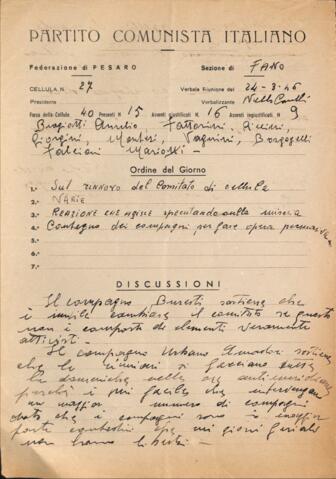 PARTITO COMUNISTA ITALIANO
Federazione di PESARO Sezione di FANO
CELLULA N. 27 Verbale Riunione del 24-3-46
Presidente Verbalizzante
Forza della Cellula 40 Presenti N 15 Assenti Giustificati N 16 Assenti ingiustificati N 9
Aurelio
Giorgini,
Falcioni
Ordine del Giorno
1.- Sul rinnovo del Comitato di cellula
2.- VARIE
3.- REAZIONE CHE AGISCE speculando sulla miseria
4.- Contegno dei compagni per fare opera
5.-
6.-
7.-
DISCUSSIONI
Il compagno sostiene che
è inutile cambiare il comitato se questo
non è composto di elementi veramente
attivisti -
Il compagno Urbano Amadori sostiene
che le riunioni si facciano
la domenica nelle ore antimeridiane
perchè è più facile che intervengano
un maggior numero di compagni
dato che i compagni sono in maggior
parte che nei giorni feriali
non hanno libertà -